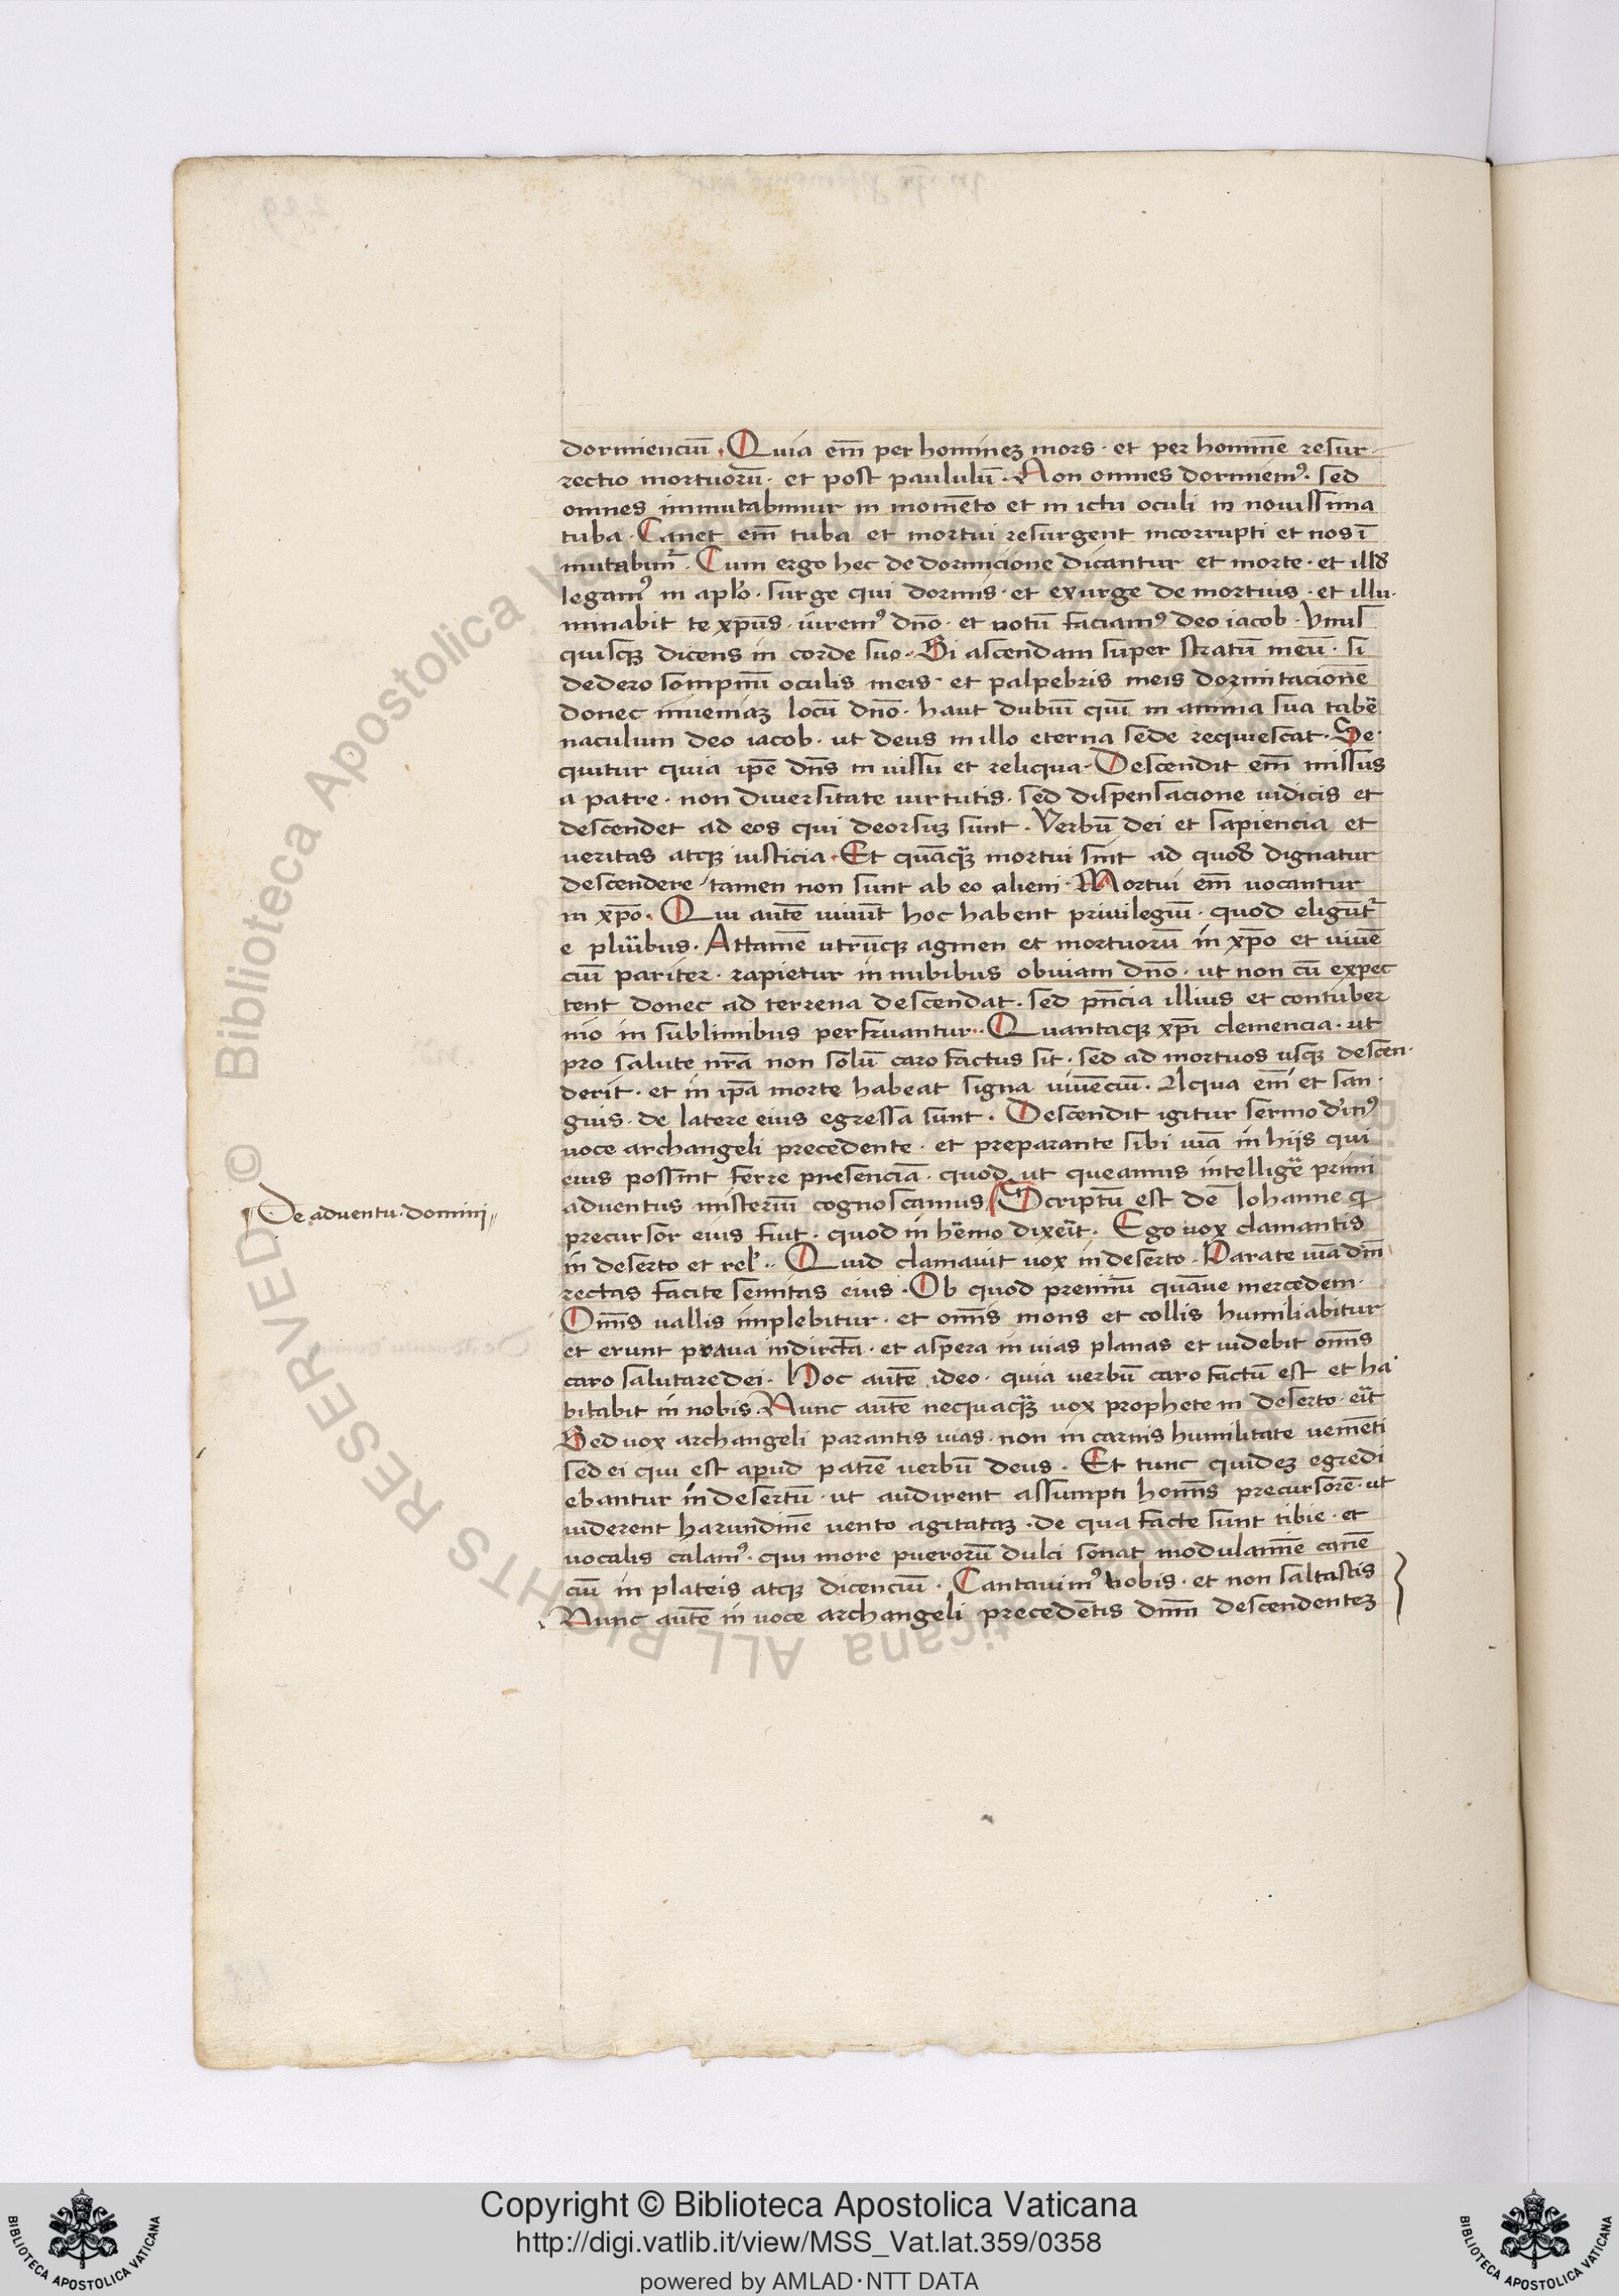 dormienciū. Quia em̄ per hominez mors · et per hominē resur-
rectio mortuorū · et post paululū · Non omnes dormiemꝰ · sed
omnes immutabimur in momēto et in ictu oculi in nouissima
tuba · Canet em̄ tuba et mortui resurgent incorrupti et nos ī
mutabimr̄ · Cum ergo hec de dormicione dicantur et morte · et illđ
legamꝰ in aplo̅ · surge qui dormis · et exurge de mortuis · et illu-
minabit te xp̄us · iuremꝰ dn̄o · et uotū faciamꝰ deo iacob · Vnus
quisqꝫ dicens in corde suo · Si ascendam super stratū meū · si
dedero sompnū oculis meis · et palpebris meis dormitacionē
donec inueniaz locū dn̄o · haut dubiū quī in anima sua tabē
naculum deo iacob · ut deus in illo eterna sede requiescat · Se-
quitur quia ip̄e dn̄s in uissu et reliqua · Descendit em̄ missus
a patre · non diuersitate uirtutis · sed dispensacione iudicis et
descendet ad eos qui deorsuz sunt · Verbū dei et sapiencia et
ueritas atqꝫ iusticia · Et quāqꝫ mortui sint ad quođ dignatur
descendere tamen non sunt ab eo alieni · Mortui em̄ uocantur
in xp̄o · Qui autē uiuūt hoc habent priuilegiū · quod eligūtr̄
e pluībus · Attamē utrūqꝫ agmen et mortuorū in xp̄o et uiuē
ciū pariter · rapietur in nubibus obuiam dn̄o · ut non eū expec
tent donec ad terrena descendat · sed pn̄cia illius et contuber
nio in sublimibus perfruantur · Quantaqꝫ xp̄i clemencia · ut
pro salute nr̄a non solū caro factus sit · sed ad mortuos usqꝫ descen-
derit · et in ip̄a morte habeat signa uiuēciū · Aqua em̄ et san-
guis · de latere eius egressa sunt · Descendit igitur sermo
uoce archangeli precedente · et preparante sibi uiā in hijs qui
eius possint ferre presenciā · quod ut queamus intelligē primi
De aduentu · domini
aduentus misteriū cognoscamus Scriptū est de Iohanne q
precursor eius fuit · quod in hēmo dixeīt · Ego uox clamantis
in deserto et rel̄ · Quid clamauit uox in deserto · Parate uiā dn̄i
rectas facite semitas eius · Ob quod premiū quāue mercedem ·
Omn̄s uallis implebitur · et omn̄s mons et collis humiliabitur
et erunt praua in dirc̄ta · et aspera in uias planas et uidebit omn̄s
caro salutare dei · Hoc autē ideo · quia uerbū caro factū est et ha
bitabit in nobis · Nunc autē nequaqꝫ uox prophete in deserto · eīt
Sed uox archangeli parantis uias · non in carnis humilitate uemēti
sed ei qui est apud patrē uerbū deus · Et tunc quidez egredi
ebantur in desertū · ut audirent assumpti homīs precursorē · ut
uiderent harundinē uento agitataz · de qua facte sunt tibie · et
uocalis calamꝰ · qui more puerorū dulci sonat modulamē canē
ciū in plateis atqꝫ dicenciū · Cantauimꝰ uobis · et non saltastis
Nunc autē in uoce archangeli precedētis dn̄m descendentez
Copyright © Biblioteca Apostolica Vaticana
http://digi.vatlib.it/view/MSS_Vat.lat.359/0358
powered by AMLAD·NTT DATA